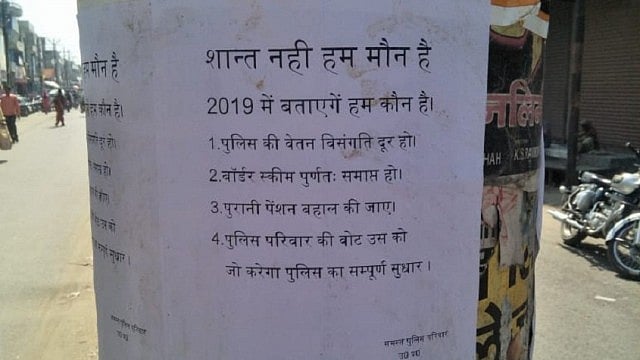 शान्त नही हम मौन है
2019 में बताएगें हम कौन है।
1.पुलिस की वेतन विसंगति दूर हो।
2.बॉर्डर स्कीम पुर्णतः समाप्त हो।
3.पुरानी पेंशन बहाल की जाए।
4.पुलिस परिवार की वोट उस को
जो करेगा पुलिस का सम्पूर्ण सुधार।
समस्त पुलिस परिवार
उ0 प्र0
मौन है
हम कौन है।
दूर हो।
हो।
को
सम्पूर्ण सुधार।
समस्त पुलिस परिवार
उ0 प्र0
HAH